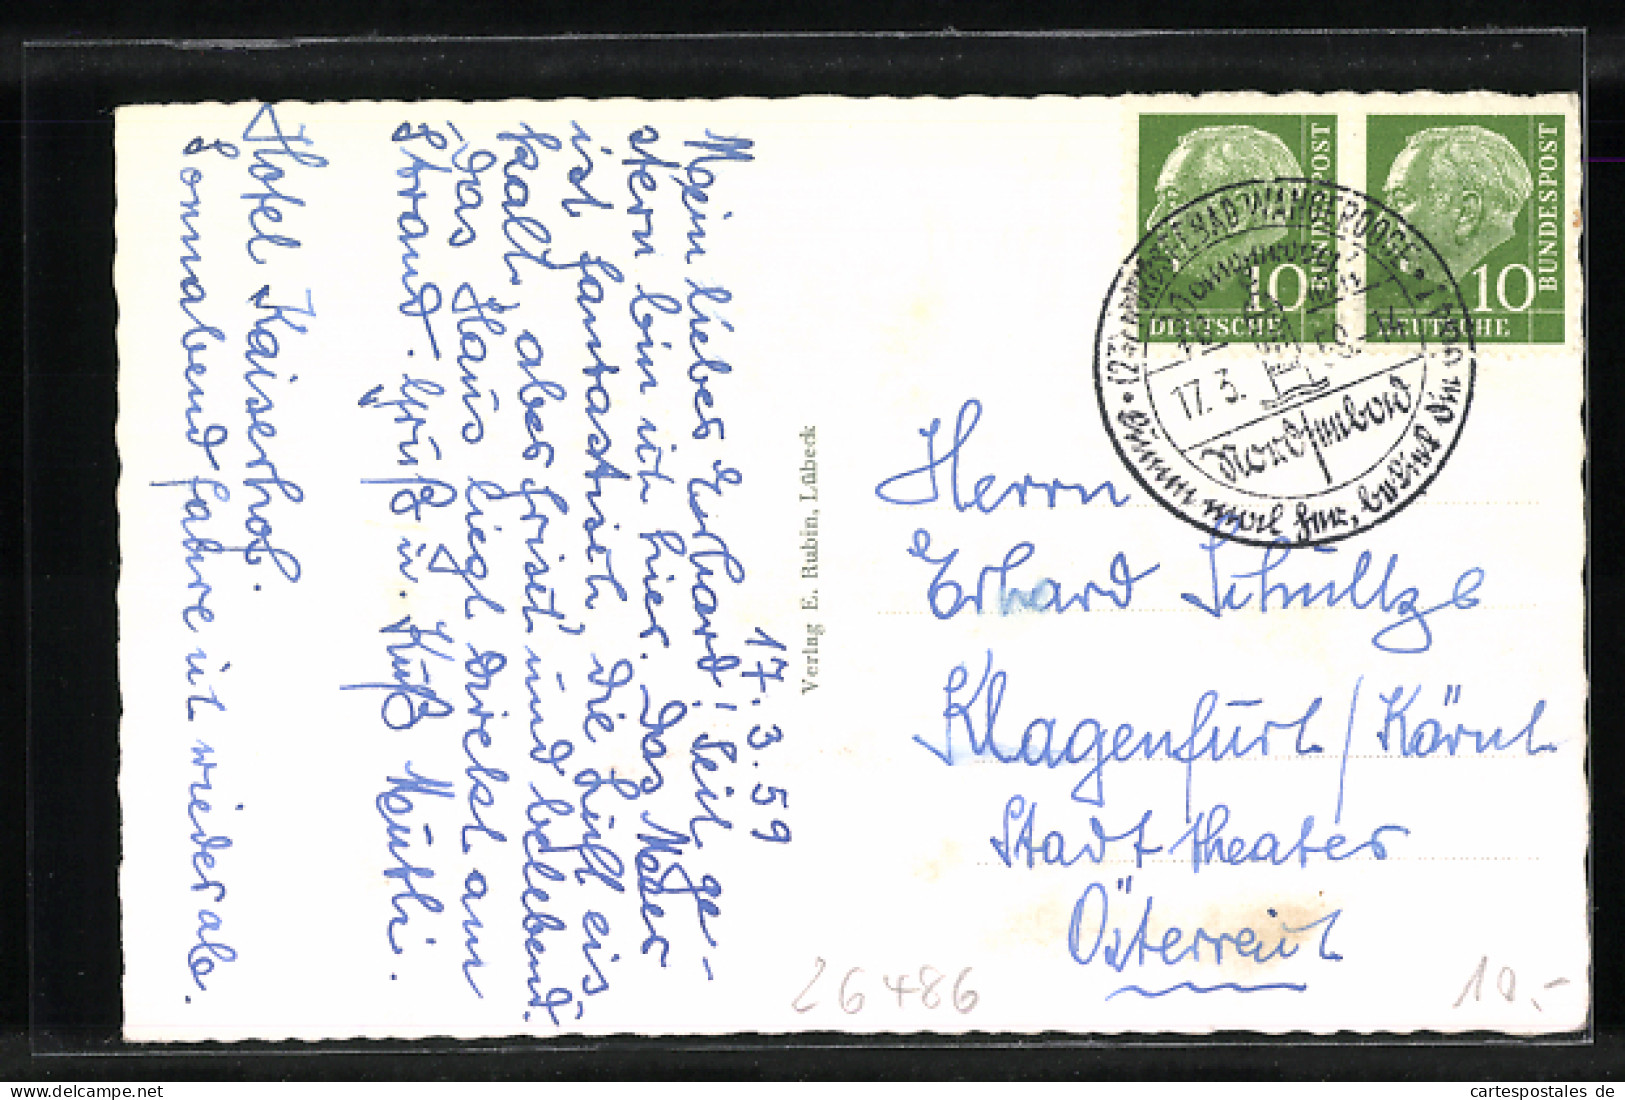 17.3.59
Mein lieber Erhard! Seit ge-
stern bin ich hier. Das Meer
ist fantastisch, die Luft eis
kalt, aber frisch und belebend.
Das Haus liegt direkt am
Strand. Gruß u. Kuß Mutti.
Hotel Kaiserhof.
Sonnabend fahre ich wieder ab.
Verlag E. Rubin, Lübeck
DEUTSCHE
BUNDESPOST
10
DEUTSCHE
BUNDESPOST
10
(23) NORDSEEBAD WANGEROOGE
17.3.59
Herrn
Erhard Schultze
Klagenfurt/Kärnt.
Stadttheater
Österreich
26486
10.-
cartespostales de